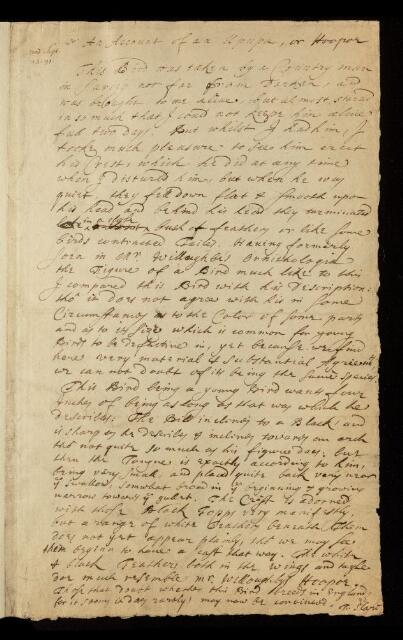 An Account of an Upupa, or Hoopor
This Bird was taken by a Country man
in Surry not far from Darken, and
was brought to me alive, but almost starved
in so much that I could not keepe him alive
full two days. But whilst I had him, I
tooke much pleasure to see him erect
his Crest, which he did at any time
when I disturbd him, but when he was
quiet they fell down flat & smooth upon
his head and behind his head they terminated
in a bush of feathers or like some
birds contracted Tailes. Having formerly
seen in Mr. Willoughbys Ornithologia
the Figure of a Bird much like to this
I compared this Bird with his Description:
tho' it does not agree with his in some
Circumstances as to the Color of some parts
and as to its size which is common for young
Birds to be defective in, yet because we find
here very material & substantial Agreemts
we can not doubt of its being the same Species.
This Bird being a young Bird wants four
ynches of being as long as that was which he
describes: The Bill inclines to a Black and
is sharp as he describes & inclines towards an arch
tho' not quite so much as his figure does: but
then the Tongue is exactly according to him,
being very small and placed quite back very near
y Swallow, somewhat broad in y beginning & growing
narrow towards y gulett. The Crest is adorned
with those Black Topps very manifestly,
but a range of white Feathers beneath them
does not yet appear plainly, tho we may see
them begin to have a cast that way. The white
& black Feathers both in the wings and
dor much resemble Mr. Willoughbys Hoopor.
Those that doubt whether this Bird breeds in England,
for it is seen very rarely, may now be convinced.